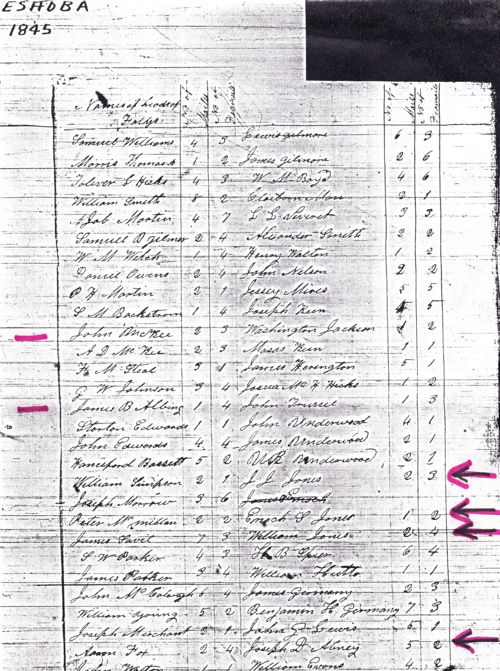 ESHOBA
1845
Names of heads of No of No of No of No of
Fallys Males Females Males Females
Samuel Williams 4 3 Lewis gilmore 6 3
Morris 1 2 James gilmore 2 6
Toliver L Hicks 4 3 W M Boyd 4 6
William Smith 8 2 Claiborn Man 2 1
Job Martin 4 7 L L 3 3
Samuel D gilmer 2 4 Alexander Smith 2 2
W M Welch 1 4 Henry Walton 1 2
Daniel Owens 2 4 John Nelson 2 2
P H Martin 2 1 Jessey Mires 5 5
S M Backstrom 1 4 Joseph Keen 5
John McKee 2 3 Washington Jackson 1 2
A D McKee 2 3 Keen 1 1
3 1 James Herington 5 1
G W Johnson 3 4 McH Hicks 1 2
James B 1 4 John 1 3
Edwards 1 1 John Underwood 4 1
John Edwards 4 4 James Underwood 2 1
Bassett 5 2 Underwood 2 1
William Simpson 2 1 J J Jones 2 3
Joseph Morrow 3 6
Peter McMillan 2 2 Enoch S Jones 1 2
James Savil 7 3 William Jones 2 4
S W Parker 4 3 H B Spier 6 4
James Parker 3 4 William Hutto 1 1
John McColough 6 4 James Germany 2 3
William Young 5 2 Benjamin H Germany 7 3
Joseph Merchant 2 1 John G Lewis 5 1
Fox 2 4 Joseph D Alney 5 2
Walton 1 1 William Evans 4 2